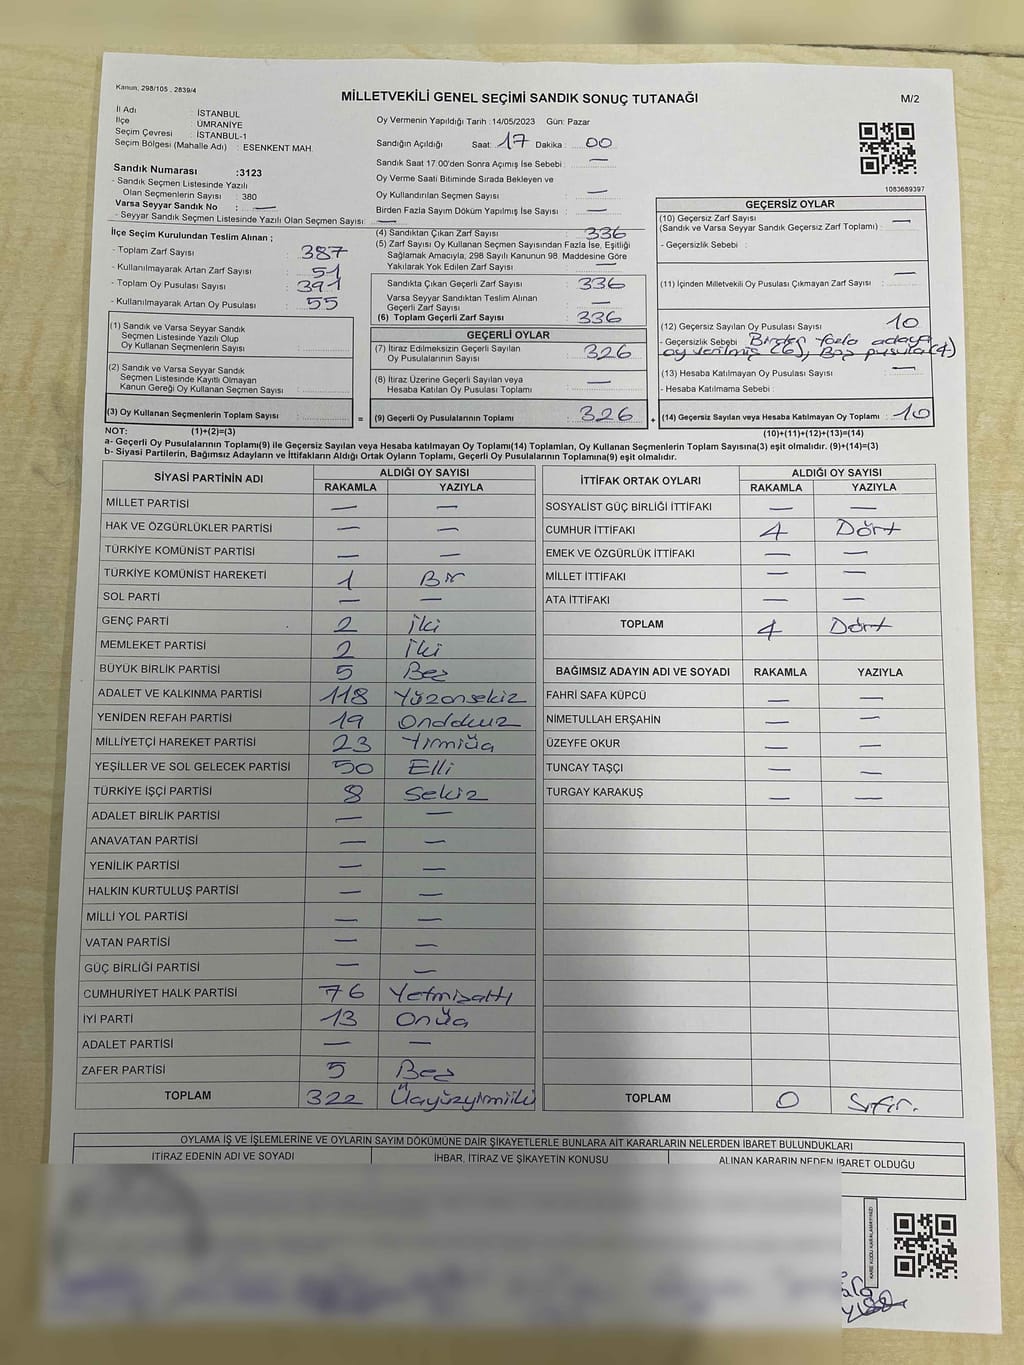 Kanun, 298/105 , 2839/4
MİLLETVEKİLİ GENEL SEÇİMİ SANDIK SONUÇ TUTANAĞI
M/2
İl Adı : İSTANBUL
İlçe : ÜMRANİYE
Seçim Çevresi : İSTANBUL-1
Seçim Bölgesi (Mahalle Adı) : ESENKENT MAH.
Sandık Numarası :3123
- Sandık Seçmen Listesinde Yazılı
Olan Seçmenlerin Sayısı : 380
Varsa Seyyar Sandık No : —
- Seyyar Sandık Seçmen Listesinde Yazılı Olan Seçmen Sayısı: —
İlçe Seçim Kurulundan Teslim Alınan ;
- Toplam Zarf Sayısı : 387
- Kullanılmayarak Artan Zarf Sayısı : 51
- Toplam Oy Pusulası Sayısı : 391
- Kullanılmayarak Artan Oy Pusulası : 55
(1) Sandık ve Varsa Seyyar Sandık
Seçmen Listesinde Yazılı Olup
Oy Kullanan Seçmenlerin Sayısı :
(2) Sandık ve Varsa Seyyar Sandık
Seçmen Listesinde Kayıtlı Olmayan
Kanun Gereği Oy Kullanan Seçmen Sayısı :
(3) Oy Kullanan Seçmenlerin Toplam Sayısı :
Oy Vermenin Yapıldığı Tarih :14/05/2023 Gün: Pazar
Sandığın Açıldığı Saat: 17 Dakika : 00
Sandık Saat 17.00'den Sonra Açımış İse Sebebi : —
Oy Verme Saati Bitiminde Sırada Bekleyen ve
Oy Kullandırılan Seçmen Sayısı : —
Birden Fazla Sayım Döküm Yapılmış İse Sayısı : —
(4) Sandıktan Çıkan Zarf Sayısı : 336
(5) Zarf Sayısı Oy Kullanan Seçmen Sayısından Fazla İse, Eşitliği
Sağlamak Amacıyla, 298 Sayılı Kanunun 98. Maddesine Göre
Yakılarak Yok Edilen Zarf Sayısı : —
Sandıkta Çıkan Geçerli Zarf Sayısı : 336
Varsa Seyyar Sandıktan Teslim Alınan
Geçerli Zarf Sayısı : —
(6) Toplam Geçerli Zarf Sayısı : 336
GEÇERLİ OYLAR
(7) İtiraz Edilmeksizin Geçerli Sayılan
Oy Pusulalarının Sayısı : 326
(8) İtiraz Üzerine Geçerli Sayılan veya
Hesaba Katılan Oy Pusulası Toplamı : —
= (9) Geçerli Oy Pusulalarının Toplamı : 326 +
1083689397
GEÇERSİZ OYLAR
(10) Geçersiz Zarf Sayısı : —
(Sandık ve Varsa Seyyar Sandık Geçersiz Zarf Toplamı)
- Geçersizlik Sebebi :
(11) İçinden Milletvekili Oy Pusulası Çıkmayan Zarf Sayısı: —
(12) Geçersiz Sayılan Oy Pusulası Sayısı : 10
- Geçersizlik Sebebi : Birden fazla adaya
oy verilmiş (6), Boş pusula(4)
(13) Hesaba Katılmayan Oy Pusulası Sayısı : —
- Hesaba Katılmama Sebebi :
(14) Geçersiz Sayılan veya Hesaba Katılmayan Oy Toplamı : 10
NOT: (1)+(2)=(3)
(10)+(11)+(12)+(13)=(14)
a- Geçerli Oy Pusulalarının Toplamı(9) ile Geçersiz Sayılan veya Hesaba katılmayan Oy Toplamı(14) Toplamları, Oy Kullanan Seçmenlerin Toplam Sayısına(3) eşit olmalıdır. (9)+(14)=(3)
b- Siyasi Partilerin, Bağımsız Adayların ve İttifakların Aldığı Ortak Oyların Toplamı, Geçerli Oy Pusulalarının Toplamına(9) eşit olmalıdır.
SİYASİ PARTİNİN ADI ALDIĞI OY SAYISI
RAKAMLA YAZIYLA
MİLLET PARTİSİ — —
HAK VE ÖZGÜRLÜKLER PARTİSİ — —
TÜRKİYE KOMÜNİST PARTİSİ — —
TÜRKİYE KOMÜNİST HAREKETİ 1 Bir
SOL PARTİ — —
GENÇ PARTİ 2 İki
MEMLEKET PARTİSİ 2 İki
BÜYÜK BİRLİK PARTİSİ 5 Beş
ADALET VE KALKINMA PARTİSİ 118 Yüzonsekiz
YENİDEN REFAH PARTİSİ 19 Ondokuz
MİLLİYETÇİ HAREKET PARTİSİ 23 Yirmiüç
YEŞİLLER VE SOL GELECEK PARTİSİ 50 Elli
TÜRKİYE İŞÇİ PARTİSİ 8 Sekiz
ADALET BİRLİK PARTİSİ — —
ANAVATAN PARTİSİ — —
YENİLİK PARTİSİ — —
HALKIN KURTULUŞ PARTİSİ — —
MİLLİ YOL PARTİSİ — —
VATAN PARTİSİ — —
GÜÇ BİRLİĞİ PARTİSİ — —
CUMHURİYET HALK PARTİSİ 76 Yetmişaltı
İYİ PARTİ 13 Onüç
ADALET PARTİSİ — —
ZAFER PARTİSİ 5 Beş
TOPLAM 322 Üçyüzyirmiiki
İTTİFAK ORTAK OYLARI ALDIĞI OY SAYISI
RAKAMLA YAZIYLA
SOSYALİST GÜÇ BİRLİĞİ İTTİFAKI — —
CUMHUR İTTİFAKI 4 Dört
EMEK VE ÖZGÜRLÜK İTTİFAKI — —
MİLLET İTTİFAKI — —
ATA İTTİFAKI — —
TOPLAM 4 Dört
BAĞIMSIZ ADAYIN ADI VE SOYADI RAKAMLA YAZIYLA
FAHRİ SAFA KÜPCÜ — —
NİMETULLAH ERŞAHİN — —
ÜZEYFE OKUR — —
TUNCAY TAŞÇI — —
TURGAY KARAKUŞ — —
TOPLAM 0 Sıfır.
OYLAMA İŞ VE İŞLEMLERİNE VE OYLARIN SAYIM DÖKÜMÜNE DAİR ŞİKAYETLERLE BUNLARA AİT KARARLARIN NELERDEN İBARET BULUNDUKLARI
İTİRAZ EDENİN ADI VE SOYADI İHBAR, İTİRAZ VE ŞİKAYETİN KONUSU ALINAN KARARIN NEDEN İBARET OLDUĞU
KARE KODU KARALAMAYINIZ!